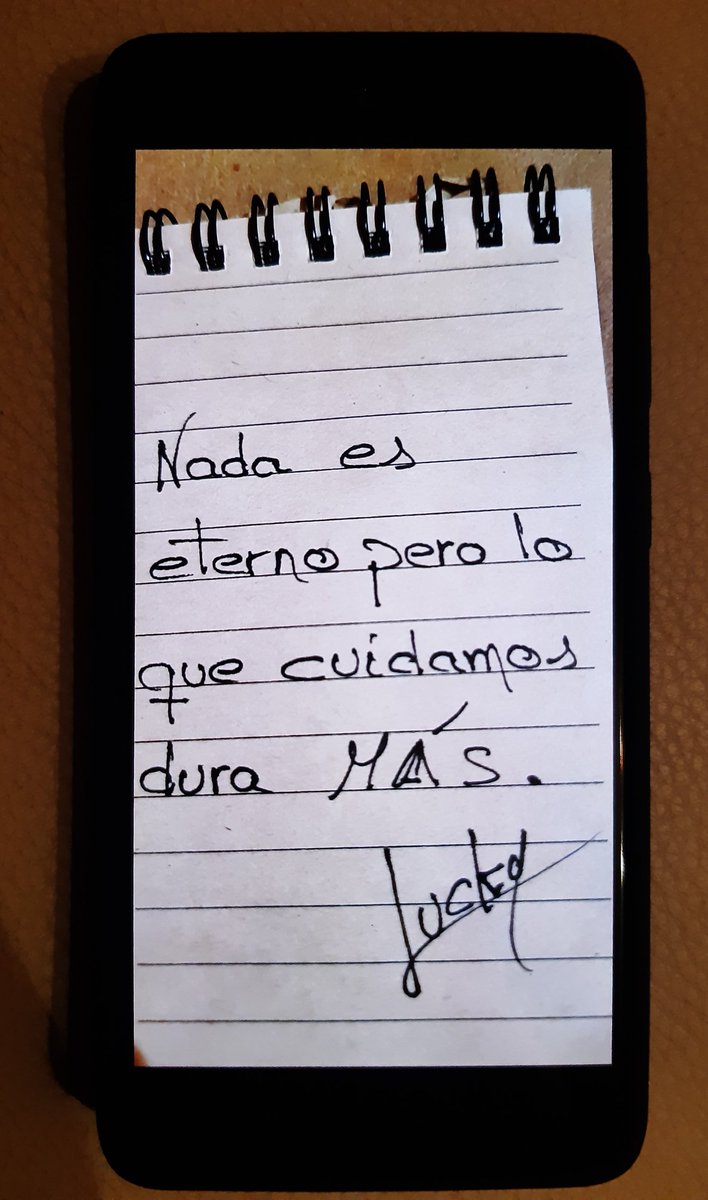 Nada es
eterno pero lo
que cuidamos
dura MÁS.